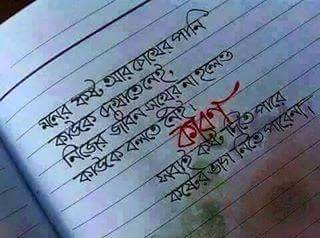 মনের কষ্ট আর চোখের পানি
কাউকে দেখাতে নেই,
নিজের জীবন সুখের না হলেও
কাউকে বলতে নেই,
কারণ
সবাই কষ্ট দিতে পারে
কষ্টের ভাগ নিতে পারেনা।